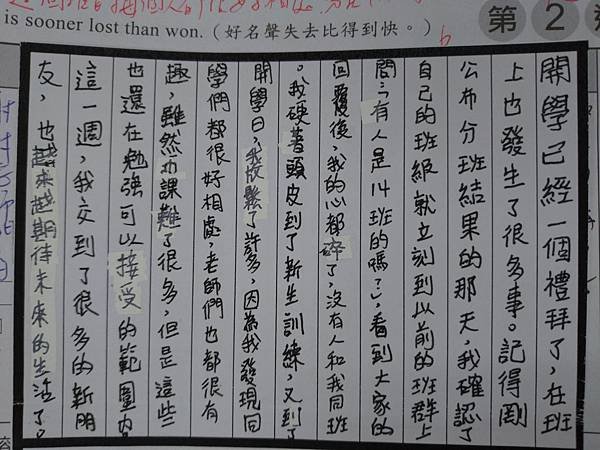 is sooner lost than won.（好名聲失去比得到快。）
第2週
開學已經一個禮拜了，在班
上也發生了很多事。記得剛
公布分班結果的那天，我確認了
自己的班級就立刻到以前的班群上
問：「有人是14班的嗎？」，看到大家的
回覆後，我的心都碎了，沒有人和我同班
。我硬著頭皮到了新生訓練，又到了
開學日，我放鬆了許多，因為我發現同
學們都很好相處，老師們也都很有
趣，雖然功課難了很多，但是這些
也還在勉強可以接受的範圍內
這一週，我交到了很多的新朋
友，也越來越期待未來的生活了。